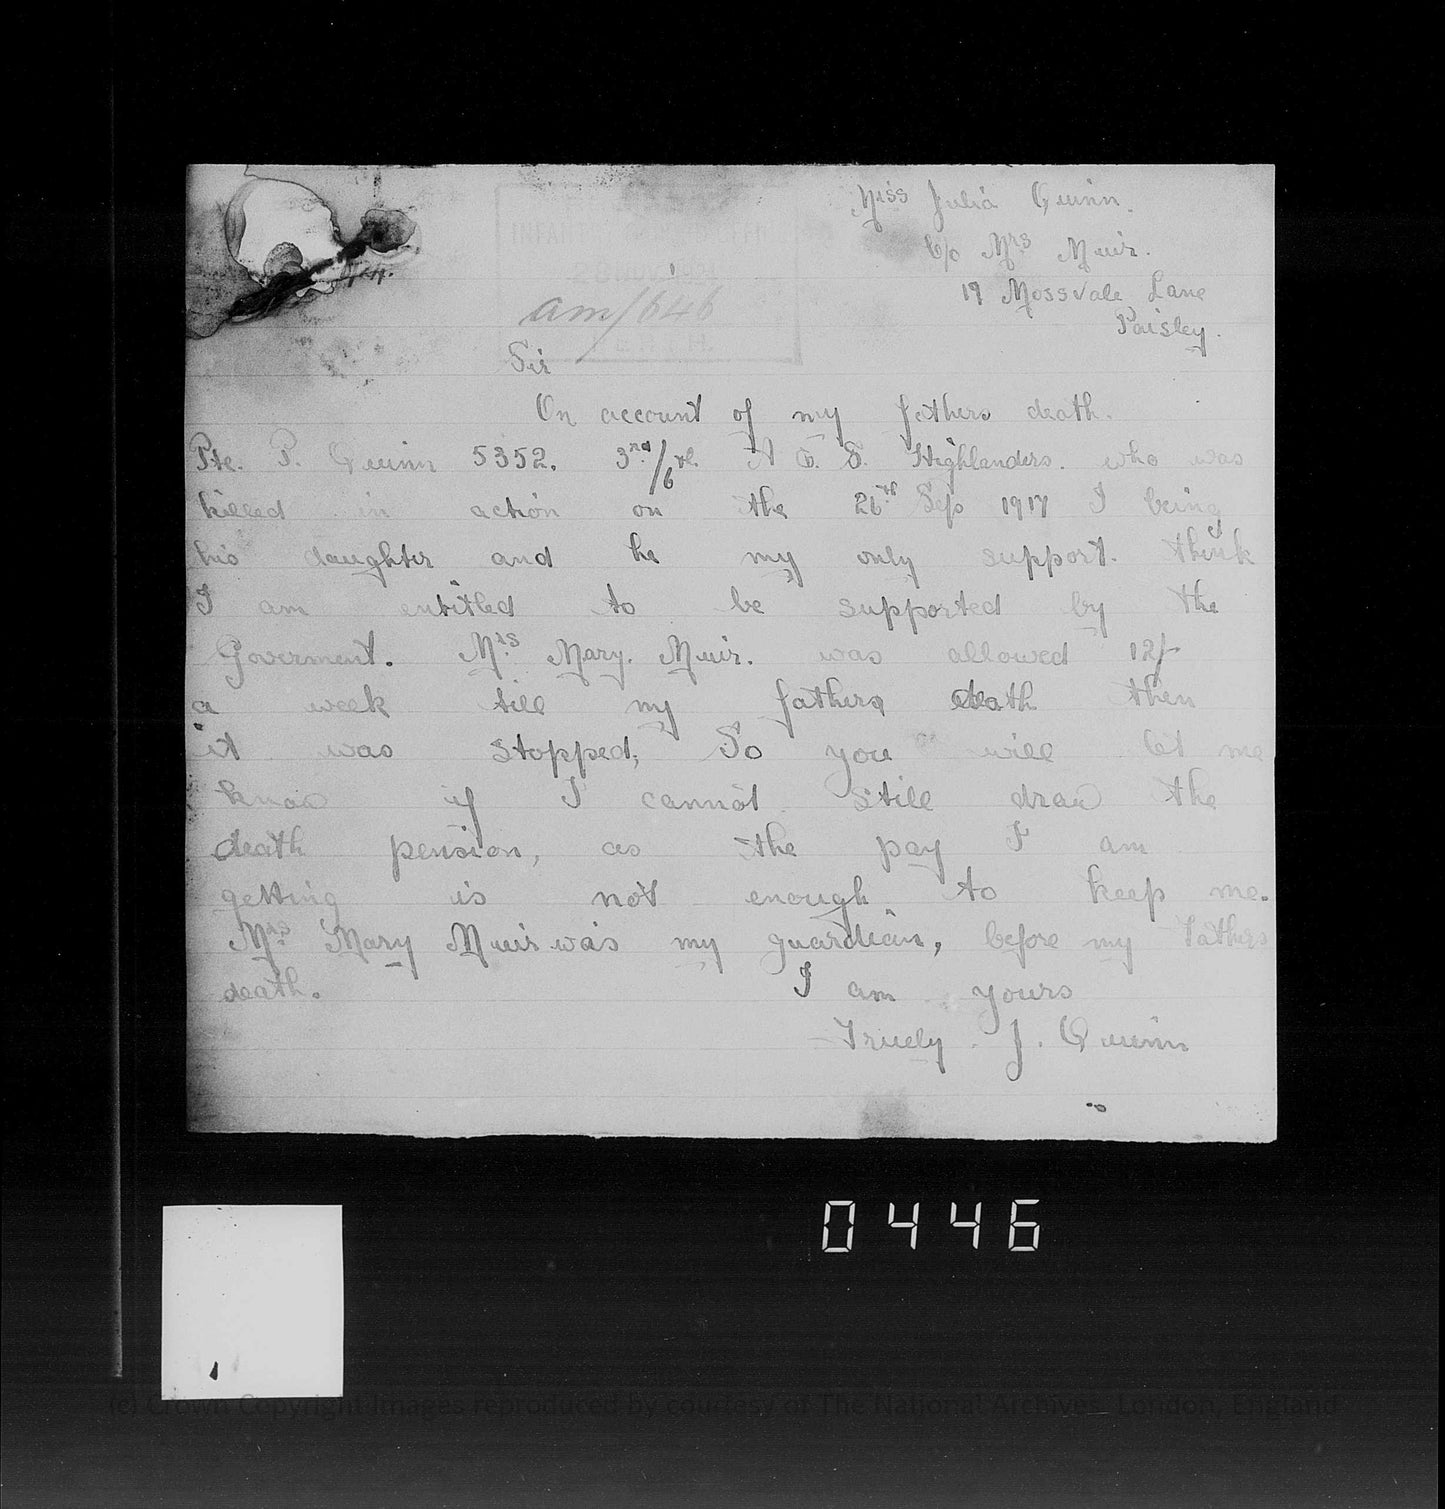 Miss Julia Quinn.
C/o Mrs Muir.
19 Mossvale Lane
Paisley.
INFANTRY
am/646
PERTH.
Sir
On account of my fathers death.
Pte. P. Quinn 5352. 3rd/6th A & S. Highlanders. who was
killed in action on the 26th Sep 1917 I being
his daughter and he my only support. think
I am entitled to be supported by the
Goverment. Mrs Mary. Muir. was allowed 12/-
a week till my fathers death then
it was stopped; So you will let me
know if I cannot still draw the
death pension, as the pay I am
getting is not enough to keep me.
Mrs Mary Muir was my guardian, before my Fathers
death. I am yours
Truely J. Quinn
0446
(c) Crown Copyright Images reproduced by courtesy of The National Archives, London, England